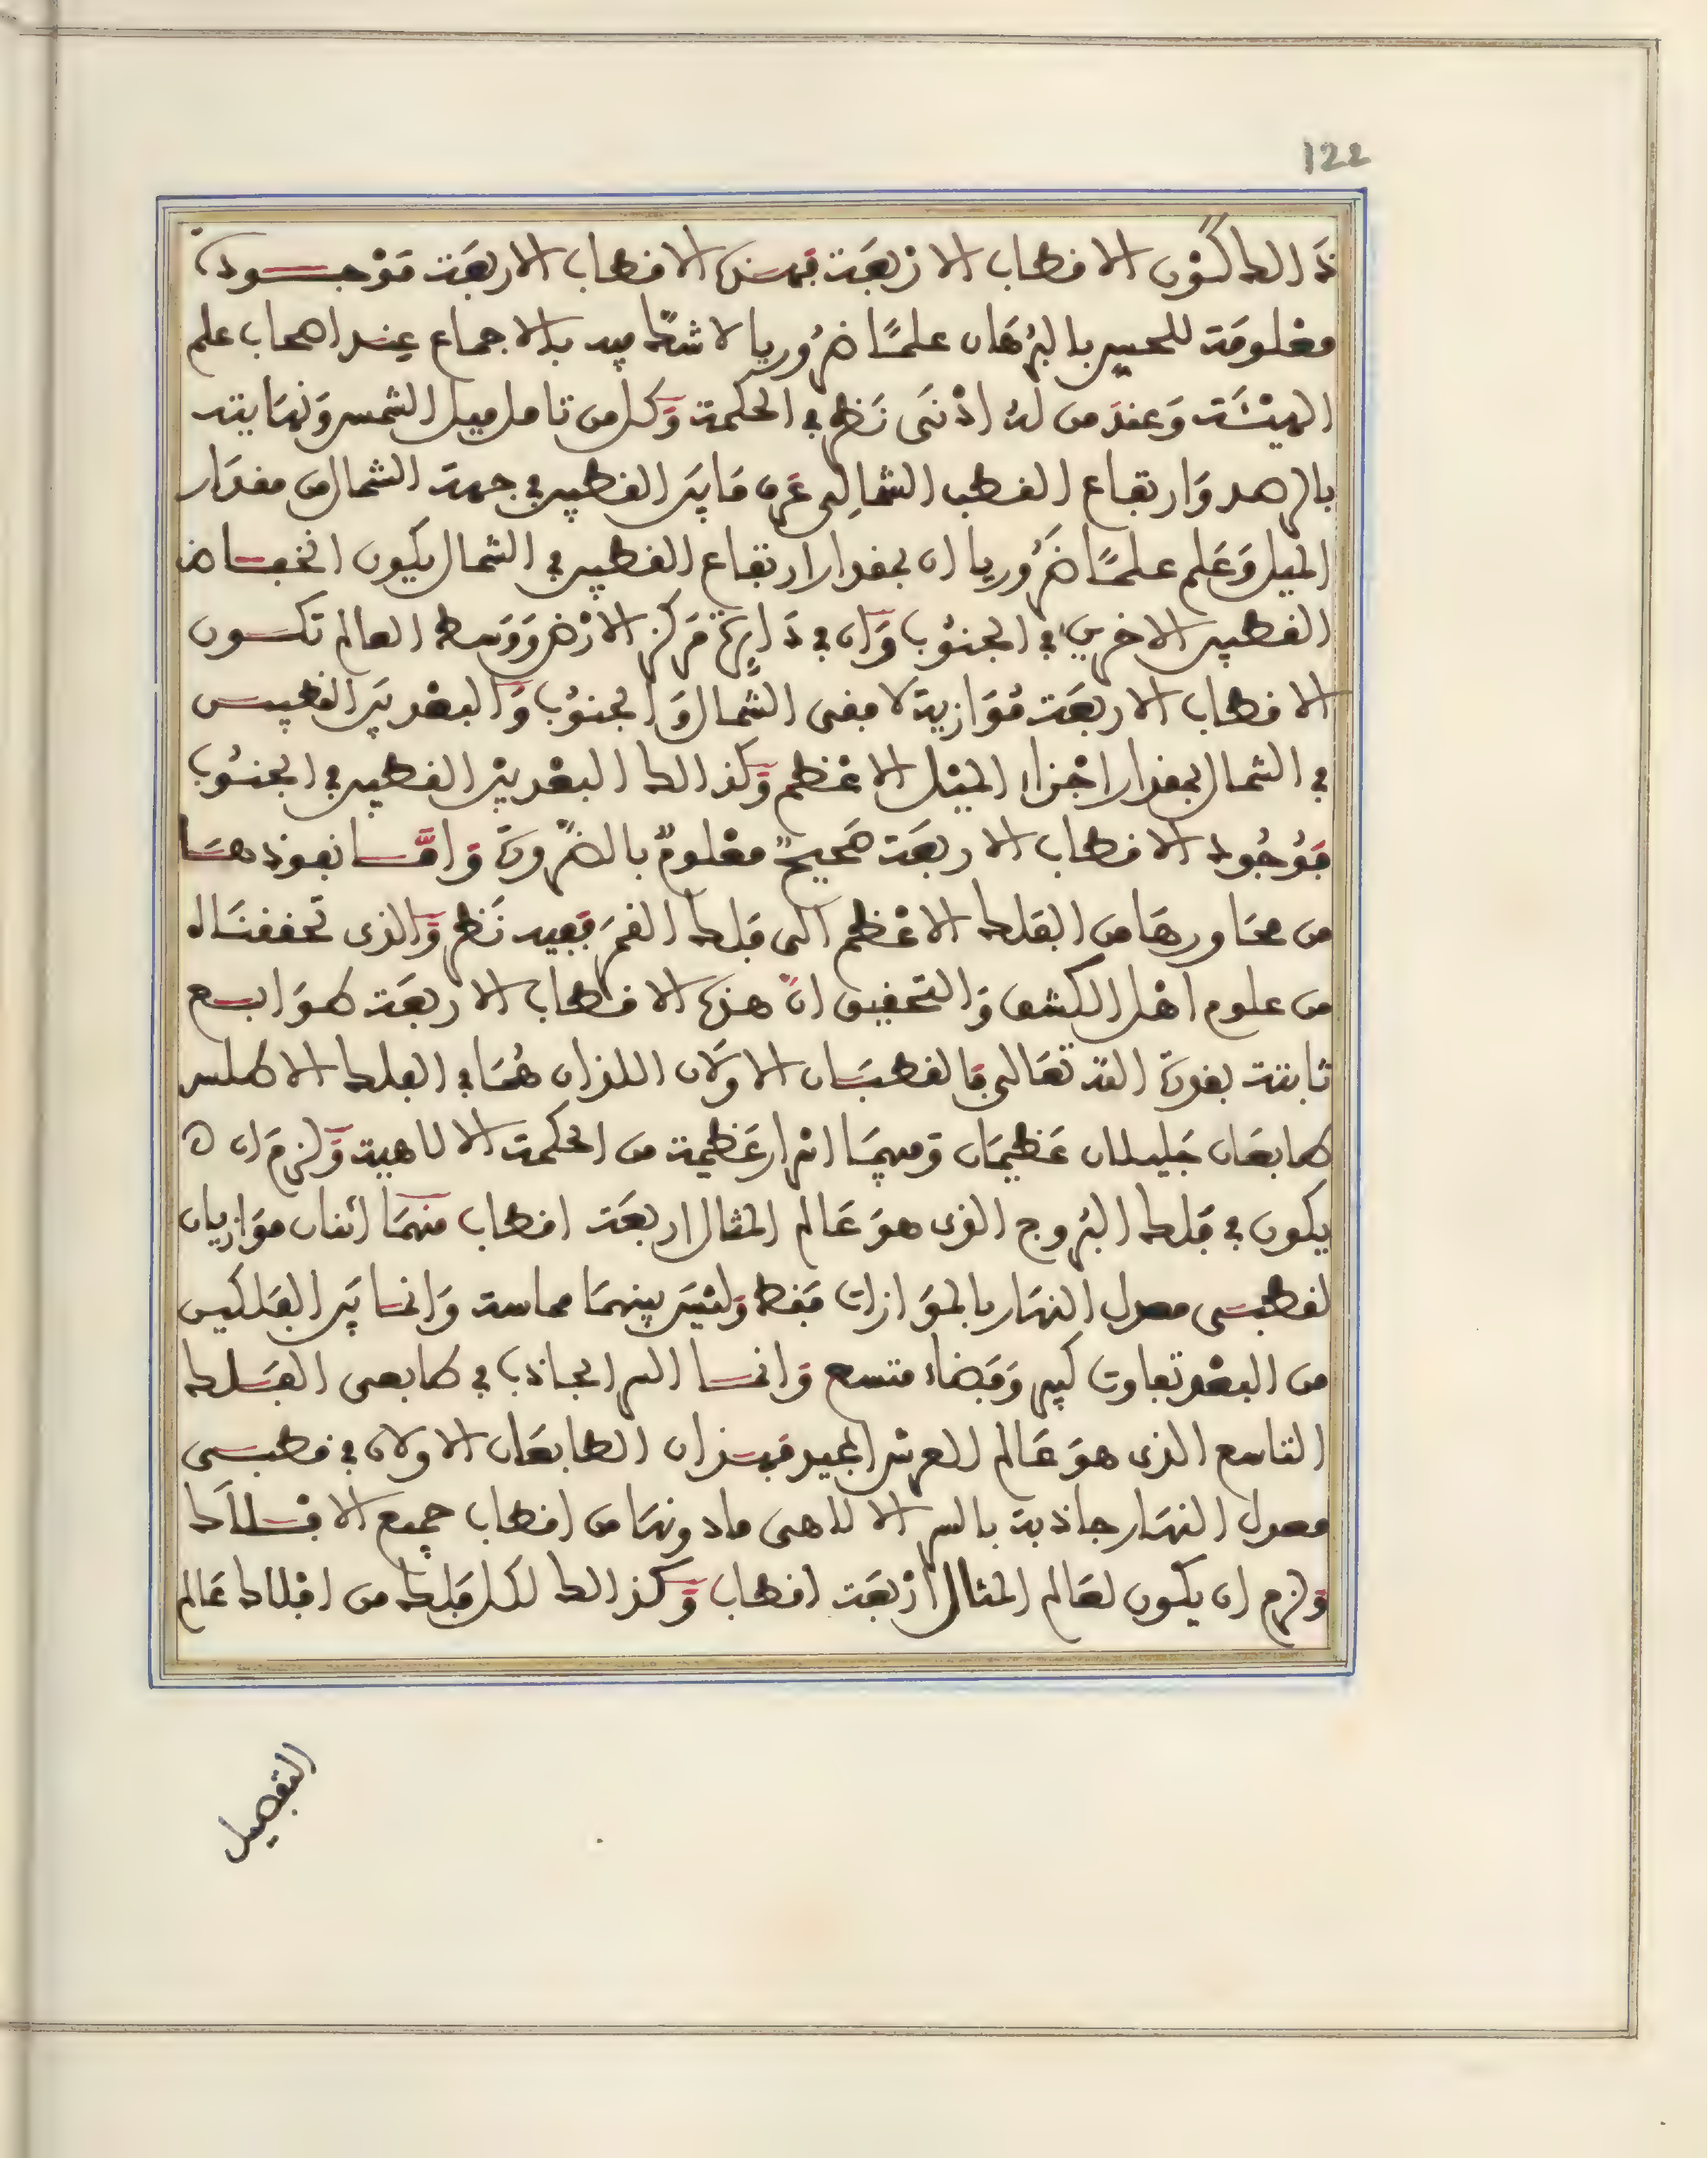 122
ذالك كون الاقطاب الاربعة فهذه الاقطاب الاربعة موجودة
معلومة للحس بالبرهان علما ضروريا لا شك فيه بالاجماع عند اصحاب علم
الهيئة وعند من له اذنى نظر في الحكمة وكل من تامل ميل الشمس ونهايته
بالرصد وارتفاع القطب الشمالى عرف ما بين القطبين في جهة الشمال من مقدار
الميل وعلم علما ضروريا ان بمقدار ارتفاع القطبين في الشمال يكون انخفاض
القطبين الاخرين في الجنوب وان في دايرة مركز الارض ووسط العالم تكون
الاقطاب الاربعة موازية لافقى الشمال والجنوب والبعد بين القطبين
في الشمال بمقدار اجزاء الميل الاعظم وكذالك البعد بين القطبين في الجنوب
فوجود الاقطاب الاربعة صحيح معلوم بالضرورة واما نفوذها
من محاورها من الفلك الاعظم الى فلك القمر ففيه نظر والذى تحققناه
من علوم اهل الكشف والتحقيق ان هذه الاقطاب الاربعة طوابع
ثابتة بقوة الله تعالى فالقطبان الاولان اللذان هما في الفلك الاطلس
طابعان جليلان عظيمان وفيهما اسرار عظيمة من الحكمة الالاهية ولزم ان
يكون في فلك البروج الذى هو عالم المثال اربعة اقطاب منهما اثنان موازيان
لقطبى معدل النهار بالموازات فقط وليس بينهما مماسة وانما بين الفلكين
من البعد تفاوت كبير وفضاء متسع وانما السر الجاذب في طابعى الفلك
التاسع الذى هو عالم العرش المجيد فهذان الطابعان الاولان في قطبى
معدل النهار جاذبة بالسر الالاهى مادونها من اقطاب جميع الافلاك
ولزم ان يكون لعالم المثال اربعة اقطاب وكذالك لكل فلك من افلاك عالم
التفصيل